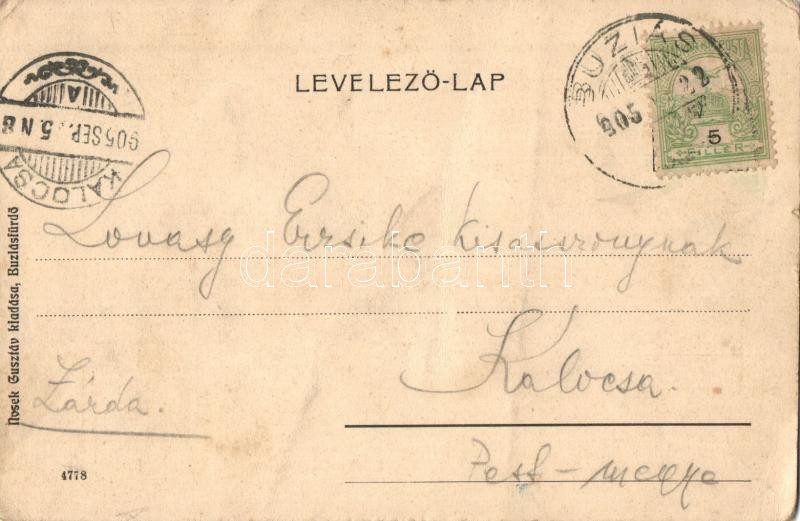 LEVELEZŐ-LAP
BUZIÁS
905
22
5
FILLÉR
KALOCSA
905 SEP. 5. N 8
A
Lovasy Erzsike kisasszonynak
Kalocsa.
Zárda.
Pest-megye
Nosek Gusztáv kiadása, Buziásfürdő
4778
darabanth